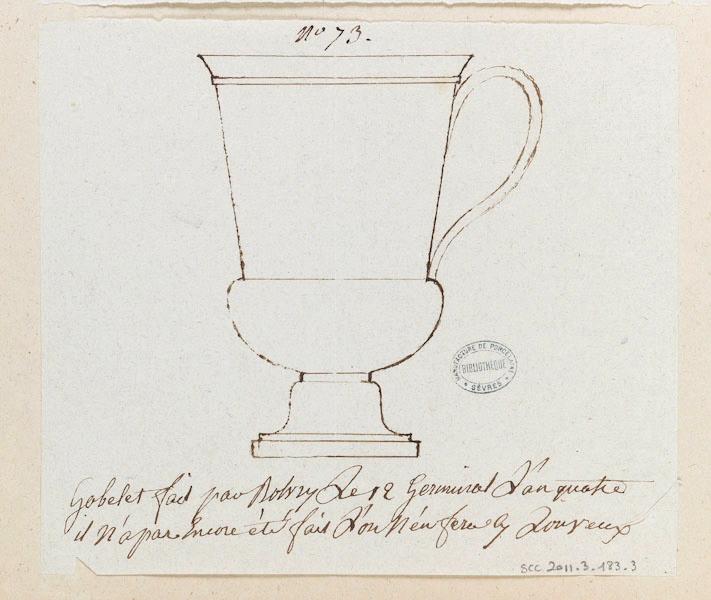 No 73.
MANUFACTURE DE PORCELAINE
BIBLIOTHEQUE
SÈVRES
Gobelet fait par Le 12 Germinal L'an quatre
il N'a pas Encore été fait L'on N'en fera
SCC 2011.3.183.3